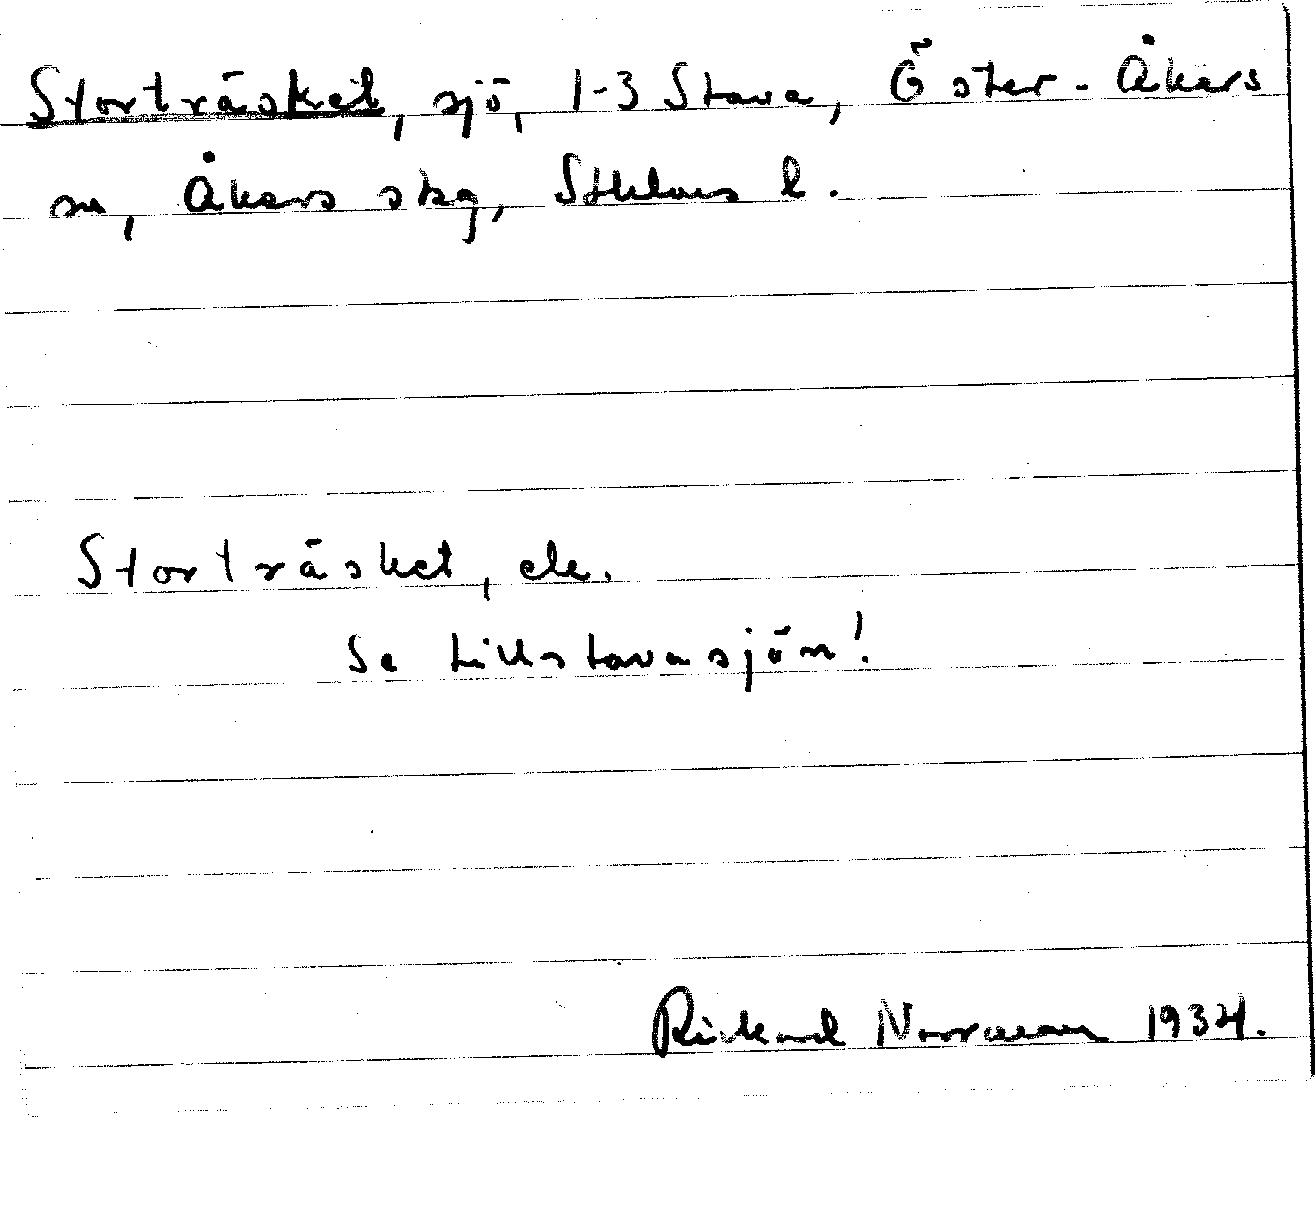 Storträsket, sjö, 1-3 Stava, Öster-Åkers
sn, Åkers skg, Sthlms l.
Storträsket, ek.
Se Lillstavasjön!
Rickard Norrman 1934.